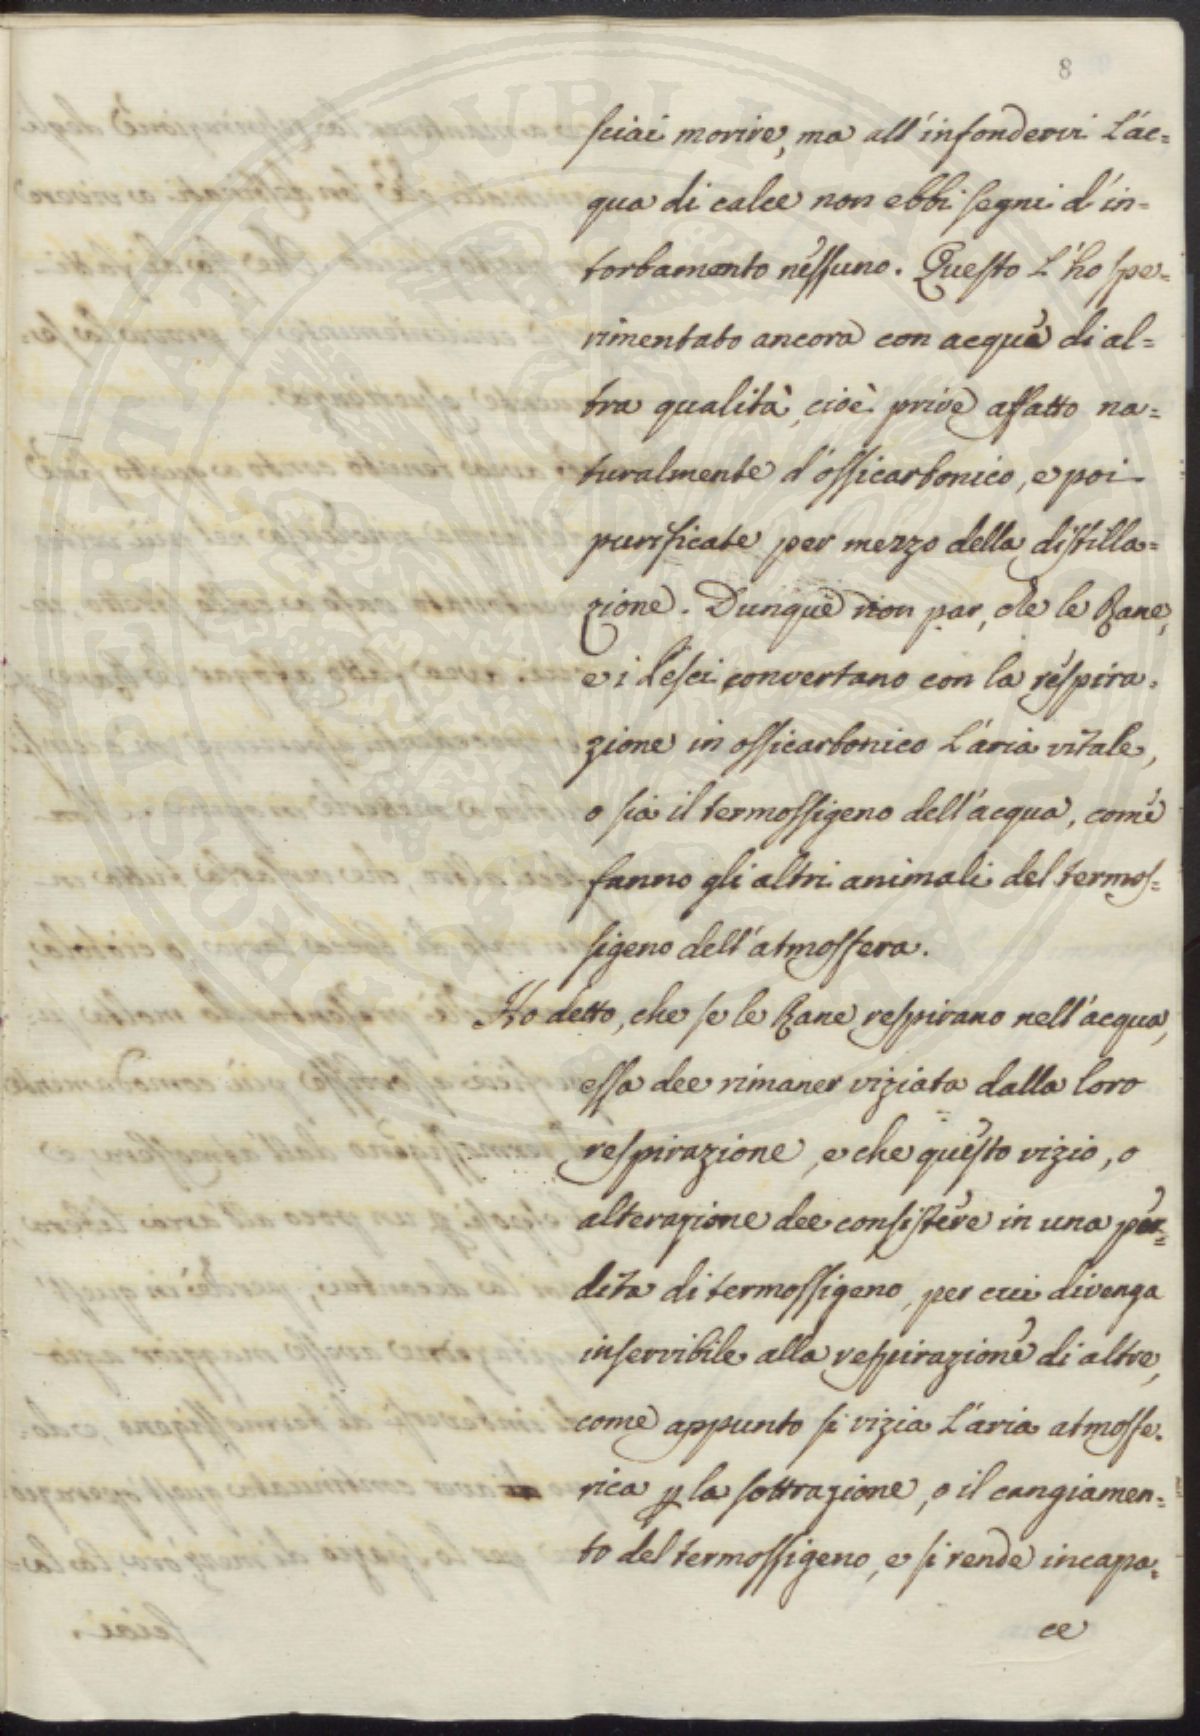 8
sciai morire, ma all'infondervi l'ac=
qua di calce non ebbi segni d'in=
torbamento nessuno. Questo l'ho spe=
rimentato ancora con acque di al=
tra qualità, cioè prive affatto na=
turalmente d'ossicarbonico, e poi
purificate per mezzo della distilla=
zione. Dunque non par, che le Rane,
e i Pesci convertano con la respira=
zione in ossicarbonico l'aria vitale,
o sia il termossigeno dell'acqua, come
fanno gli altri animali del termos=
sigeno dell'atmosfera.
Ho detto, che se le Rane respirano nell'acqua,
essa dee rimaner viziata dalla loro
respirazione, e che questo vizio, o
alterazione dee consistere in una per=
dita di termossigeno, per cui divenga
inservibile alla respirazione di altre,
come appunto si vizia l'aria atmosfe=
rica p la sottrazione, o il cangiamen=
to del termossigeno, e si rende incapa=
ce